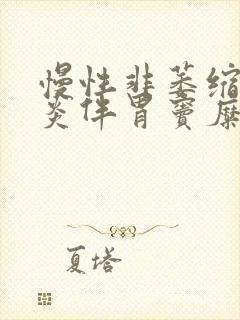 慢性非萎缩
炎伴胃窦糜
夏塔